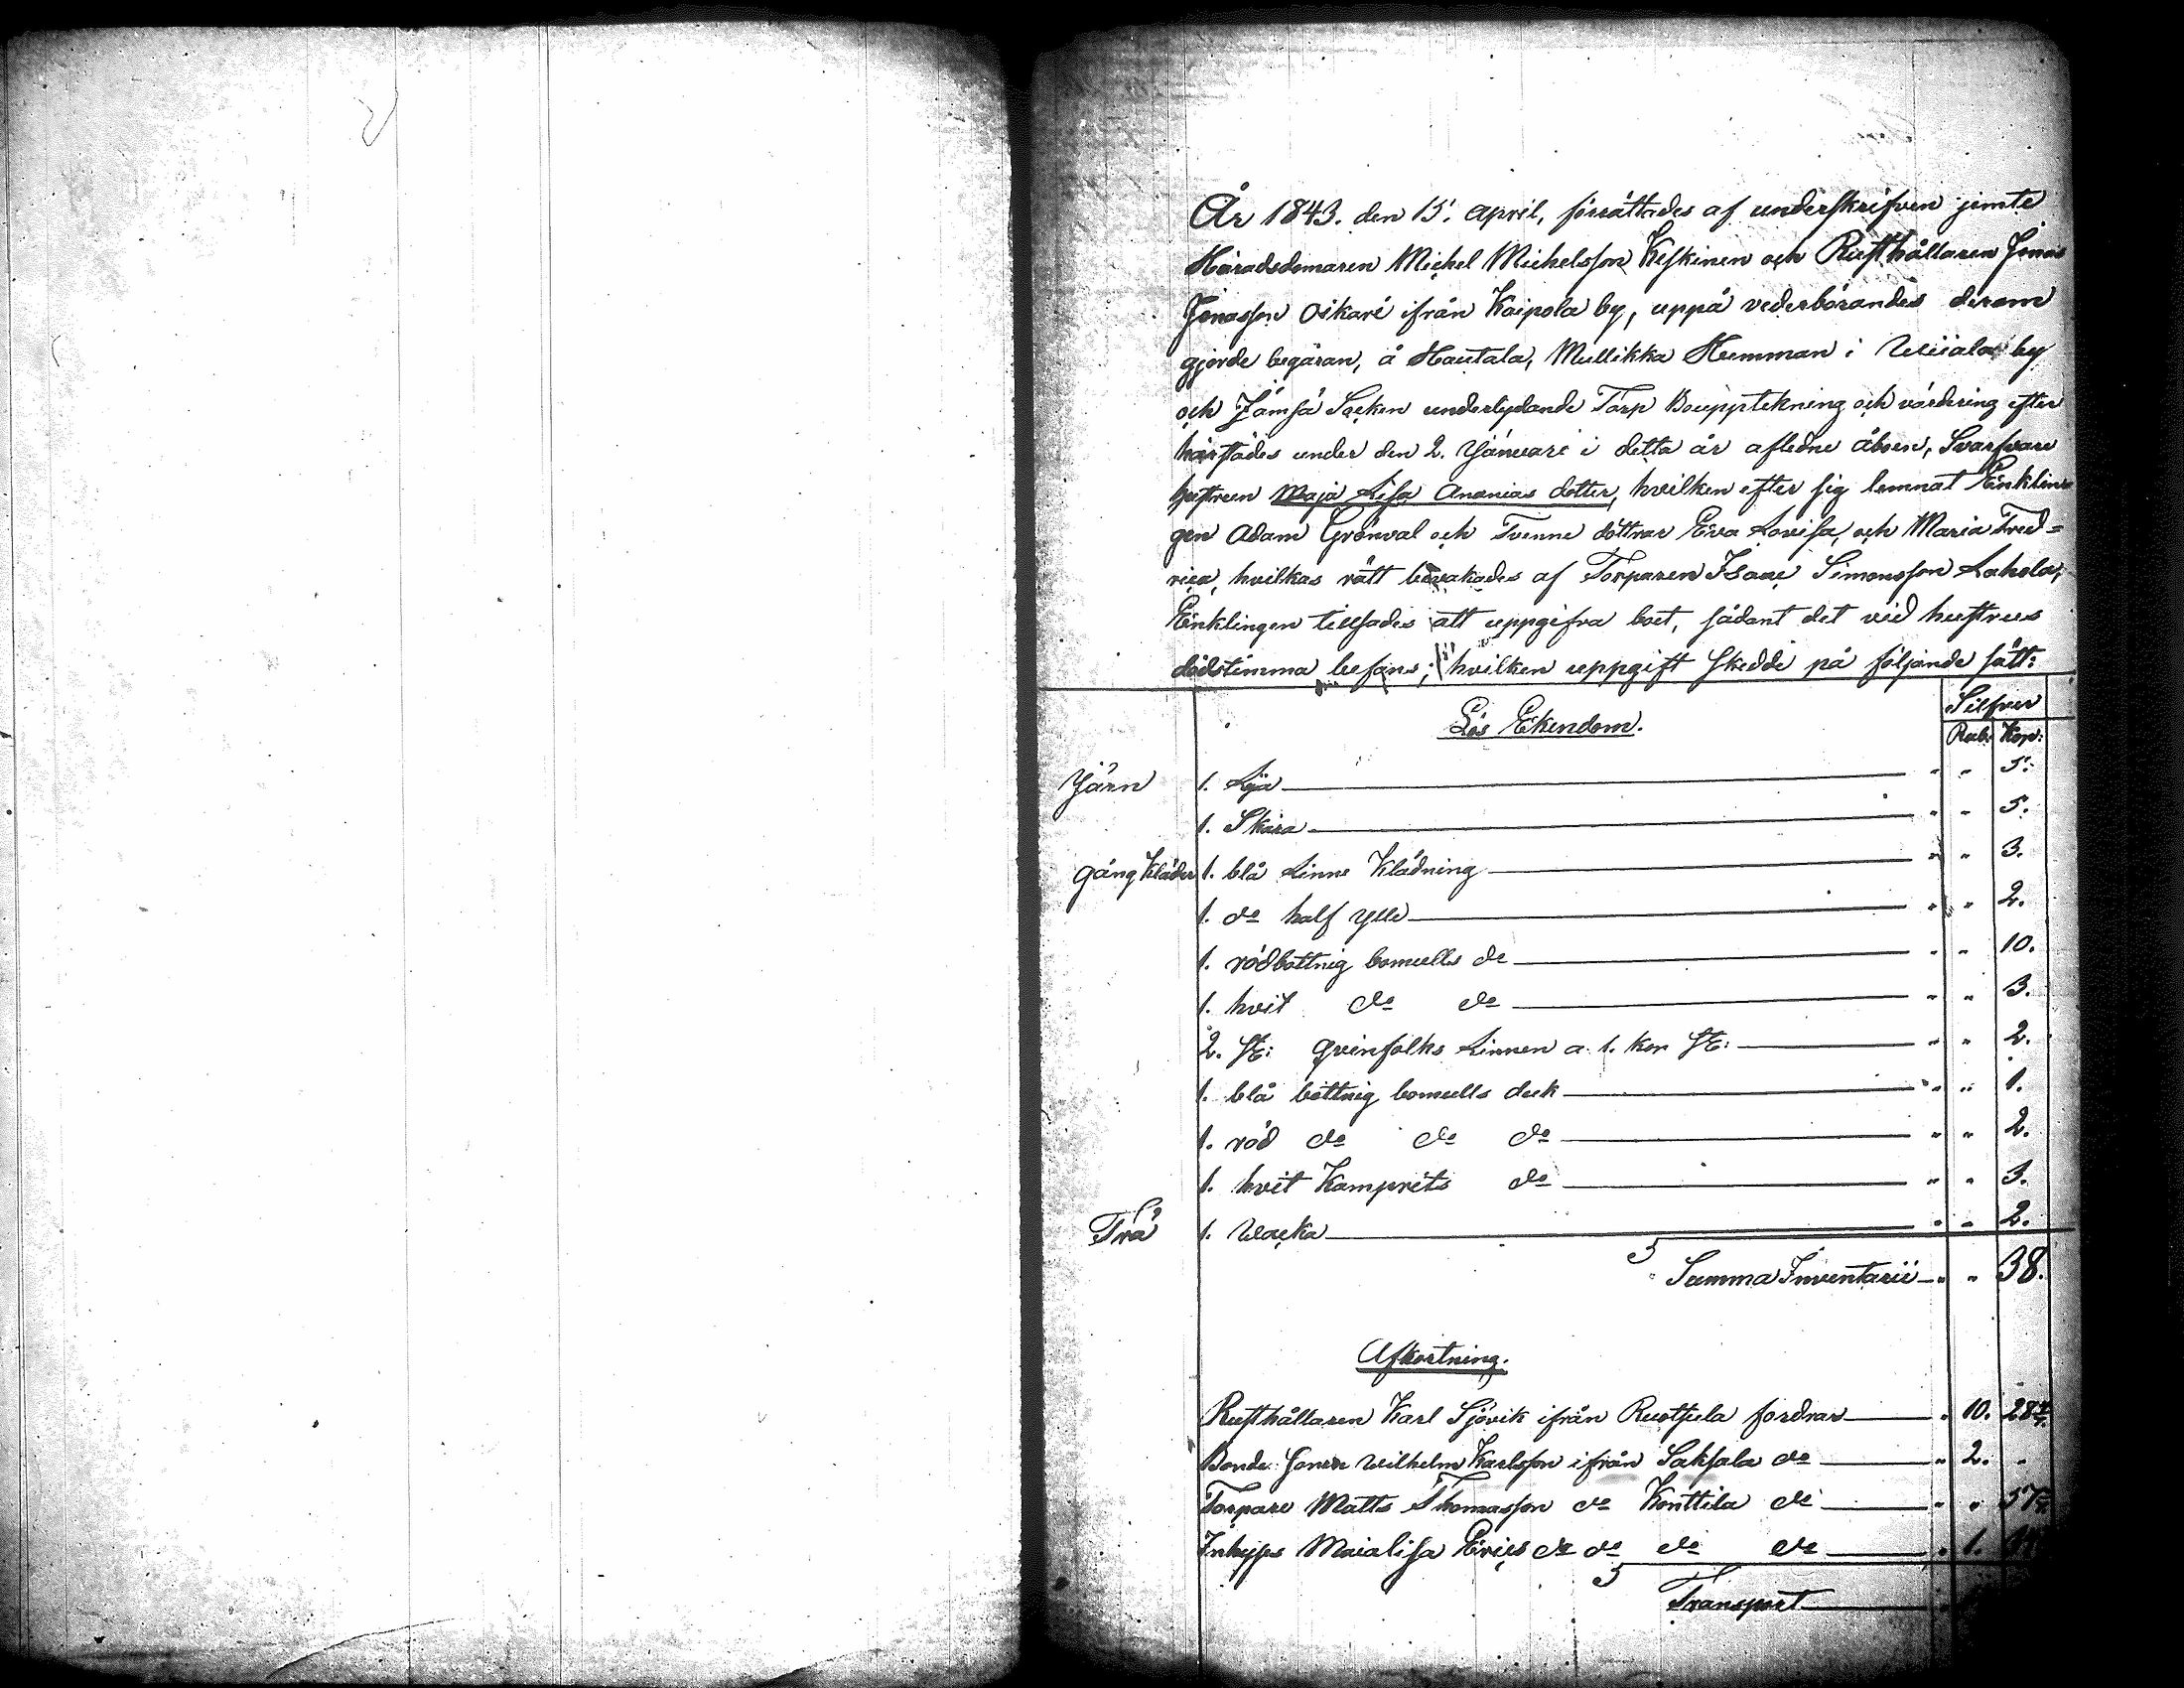 År 1843. den 15. April, förrättades af underskrifven jemte
Häradsdomaren Michel Michelsson Keskinen och Rusthållaren Jonas
Jonasson Oikari ifrån Kaipola by, uppå vederbörandes derom
gjorde begäran, å Hautala, Mullikka Hemman i by
och Jämsä Socken underlydande Torp Bouppteckning och värdering efter
härstädes under den 2. Januari i detta år aflidne Svarfvare
hustrun Maja Lisa Ananias dotter, hvilken efter sig lemnat Enklin-
gen Adam Grönval och Tvenne döttrar Eva Lovisa, och Maria Fred=
rica, hvilkas rätt bevakades af Torparen Isaac Simonsson Lahola,
Enklingen tillsades att uppgifva boet, sådant det vid hustrus
dödstimma befans; hvilken uppgift skedde på följande sätt:
Silfver
Lös Ekendom.
Rub: Kop:
Järn 1. Lija " " 5.
1. Skära " " 5.
Gång Kläder 1. blå Linne Klädning " " 3.
1. do half ylle " " 2.
1. rödbottnig bomulls do " " 10.
1. hvit do do " " 3.
2. St: qvinfolks Linnen a 1. kop St: " " 2.
1. blå bottnig bomulls duk " " 1.
1. röd do do do " " 2.
1. hvit Kamprits do " " 3.
Trä 1. Wacka " " 2.
Summa Inventarii " " 38.
Afkortning.
Rusthållaren Karl Sjövik ifrån Ruotsula fordrar " 10. 28 4/7.
Bonde Sonen Wilhelm Karlsson ifrån Saksala do " 2. "
Torpare Matts Thomasson do Konttila do " " 57
Inhyses Maialisa Erics do do do do " 1.
Transport